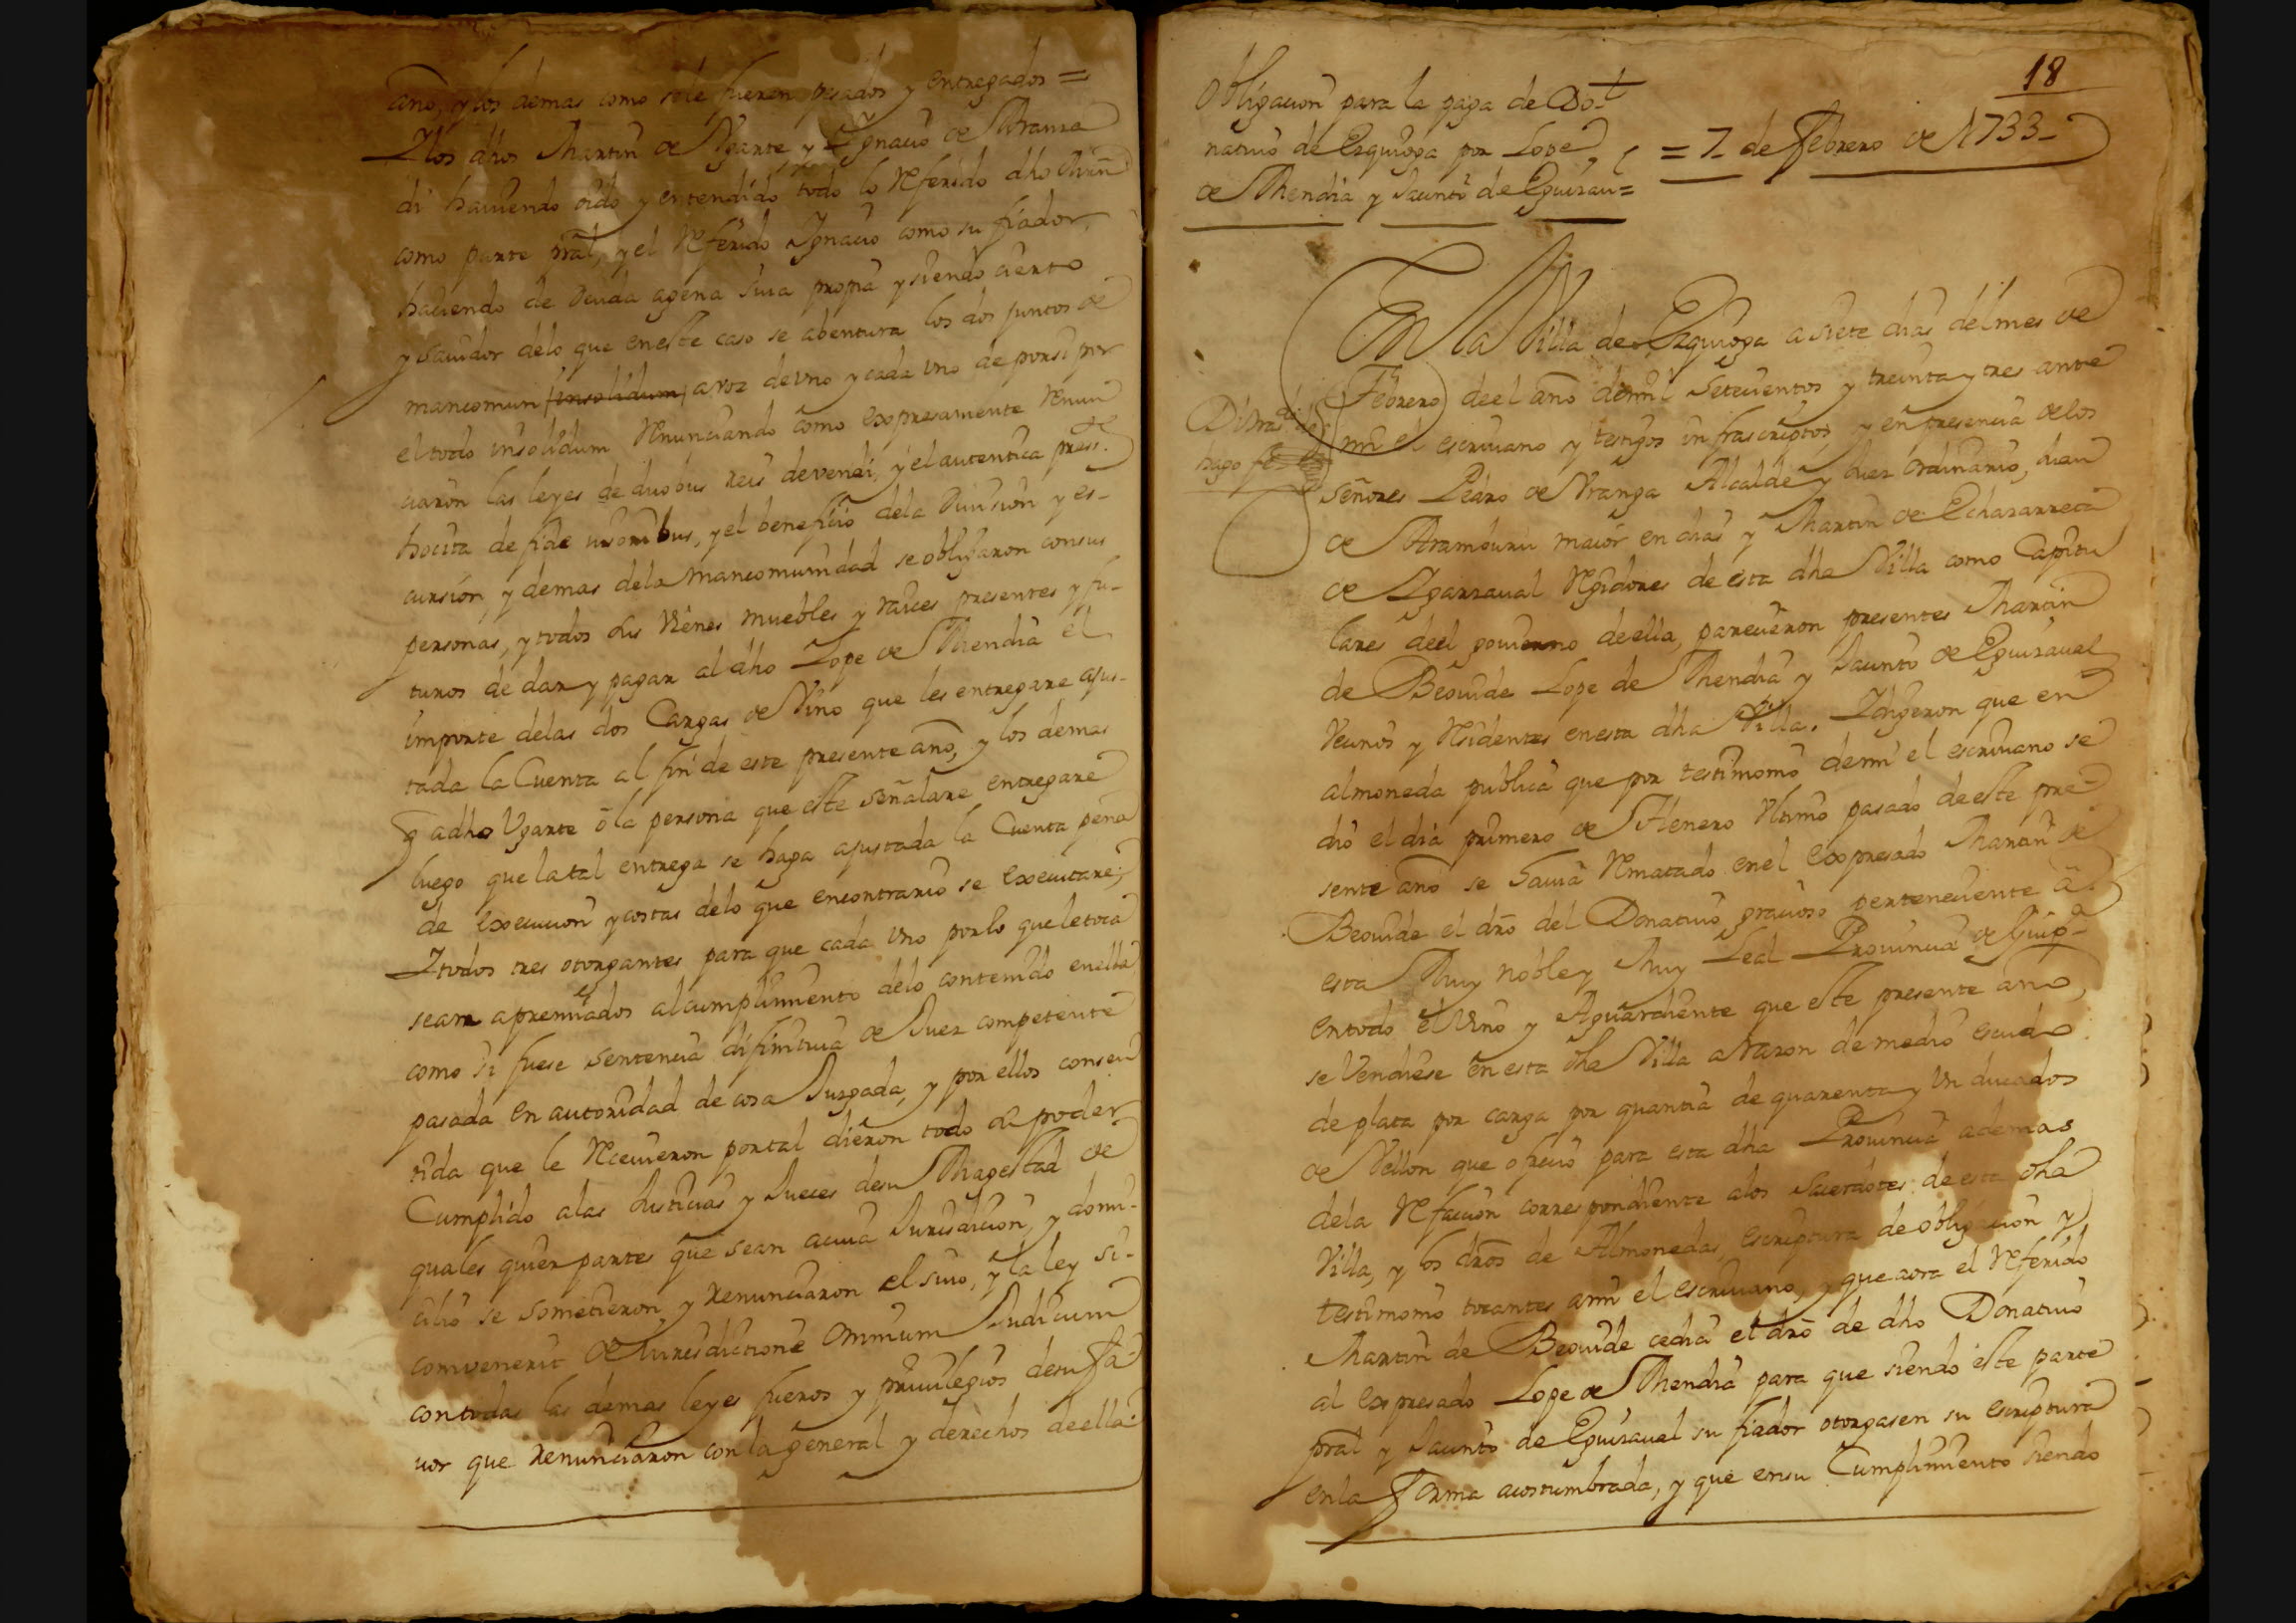 año, y los demas como sole fueren pesados y entregados =
Ylos dhos Martin de Vgarte y Ygnacio de Aranza
di haviendo oido y entendido todo lo referido dho
como parte pral, y el referido Ygnacio como su fiador,
haciendo de deuda agena suia propia y siendo cierto
y sauidor delo que eneste caso se abentura los dos juntos de
mancomun insolidum a voz de vno y cada vno de porsi por
el todo insolidum renunciando como expresamente renun
ciaron las leyes de duobus reis devendi, y el autentica press.te
hocita de fide iusoribus, y el beneficio dela diuision y es-
cursion, y demas dela mancomunidad se obligaron consus
personas, y todos sus vienes muebles y raices presentes y fu-
turos de dar y pagar al dho Lope de Mendia el
importe delas dos Cargas de Vino que les entregare ajus-
tada la Cuenta al fin de este presente año, y los demas
q adho Vgarte ō la persona que este señalare entregare
luego que la tal entrega se haga ajustada la Cuenta pena
de execucion y costas delo que encontrario se executare;
Ytodos tres otorgantes para que cada vno porlo que le toca
sean apremiados al cumplimiento delo contenido enella
como si fuese sentencia difinitiua de Juez competente
pasada en autoridad de cosa Juzgada, y por ellos consen
tida que le reciuieron portal dieron todo su poder
Cumplido alas Justicias y Jueces desu Magestad de
quales quier partes que sean acuia Jurisdicion, y domi-
cilio se sometieron, y renunciaron el suio, y la ley si-
comvenerit de Jurisdictione Omnium Judicum
contodas las demas leyes fueros y priuilegios desu fa-
uor que renunciaron con la general y derechos deella.
18
Obligacion para la paga de Do-
natiuo de Ezquioga por Lope
de Mendia y Jacinto de Eguizau=
= 7 de Febrero de 1733
En la Villa de Ezquioga a siete dias del mes de
Febrero deel año demil setecientos y treinta y tres ante
mi el escriuano y testigos infrascriptos, y en presencia delos
hago fe
señores Pedro de Vranga Alcalde y Juez ordinario, Juan
de Aramburu maior en dias y Martin de Echazarreta
de Ygarzaual regidores de esta dha Villa como Capitu
lares deel gouierno deella, parecieron presentes Martin
de Beouide Lope de Mendia y Jacinto de Eguizaual
Vecinos y residentes enesta dha Villa. Ydigeron que en
almoneda publica que por testimonio demi el escriuano se
dio el dia primero de Henero vltimo pasado de este pre
sente año se hauia rematado enel expresado Martin de
Beouide el dro del Donatiuo gracioso perteneciente a
esta Muy noble y Muy Leal Prouincia de Guip.
entodo el vino y Aguardiente que este presente año,
se vendiese en esta dha Villa a razon de medio escudo
de plata por carga por quantia de quarenta y vn ducados
de Vellon que ofrecio para esta dha Prouincia ademas
dela refaccion correspondiente alos Sacerdotes de esta dha
Villa, y los dros de Almonedas, escriptura de obligacion y
testimonio tocantes ami el escriuano, y que aora el referido
Martin de Beouide cedia el dro de dho Donatiuo
al expresado Lope de Mendia para que siendo este parte
pral y Jacinto de Eguizaual su fiador otorgasen su escriptura
enla forma acostumbrada, y que ensu Cumplimiento siendo